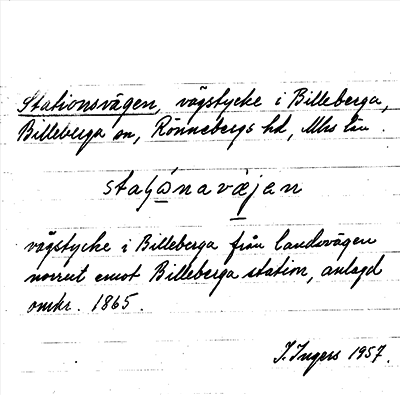 Stationsvägen, vägstycke i Billeberga,
Billeberga sn, Rönnebergs hd, Mhs län.
vägstycke i Billeberga från landsvägen
norrut emot Billeberga station, anlagd
omkr. 1865.
I. Ingers 1957.